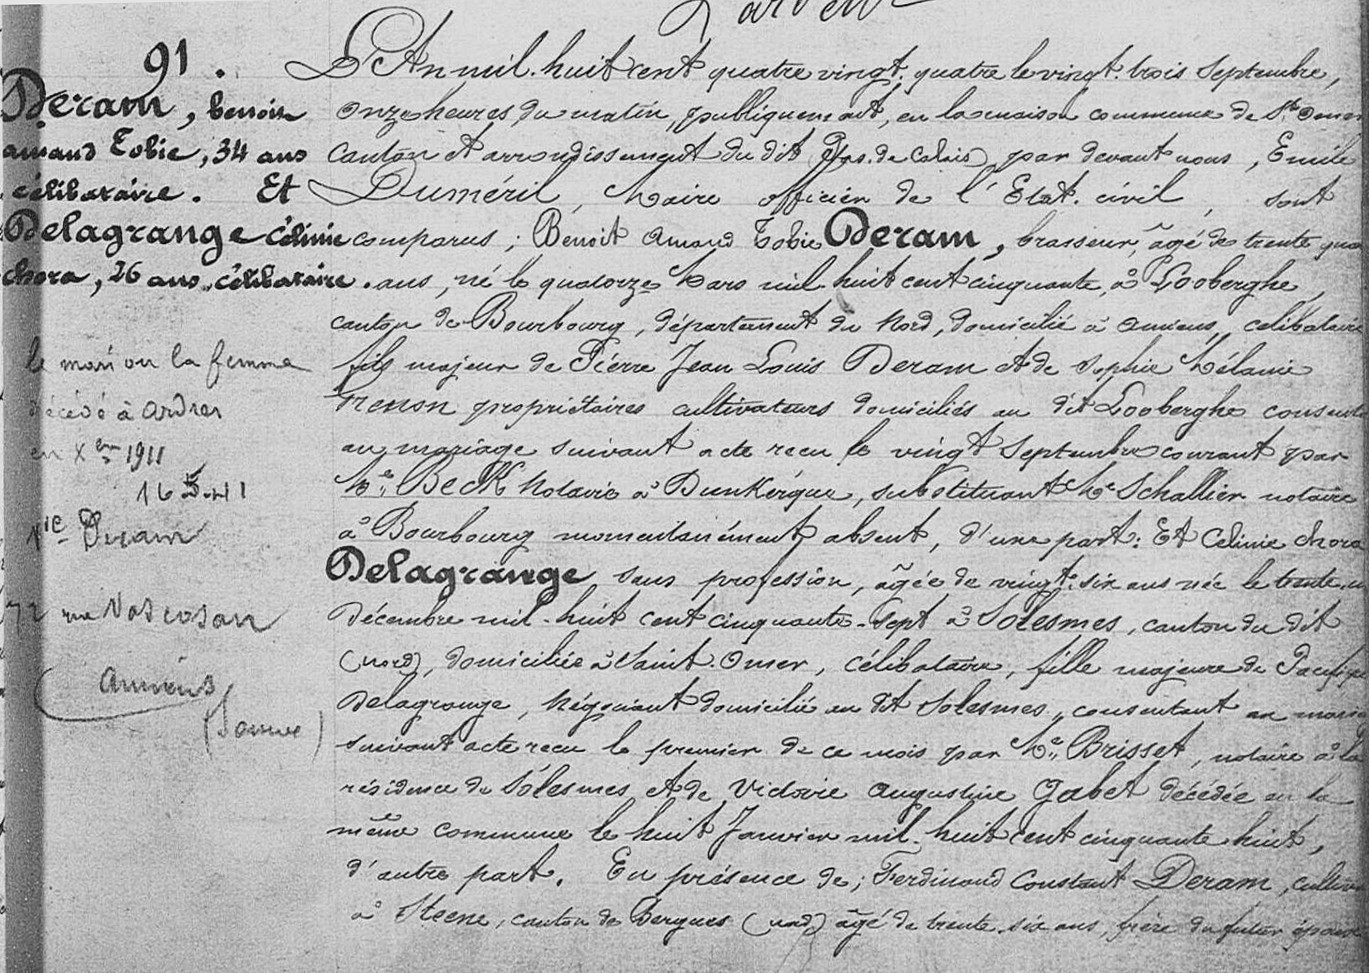 91.
Deram, benoit
amand Tobie, 34 ans
célibataire. Et
Delagrange Célinie
chora, 26 ans, célibataire.
le mari ou la femme
décédé à Ardres
en Xbre 1911
16
Deram
72 rue Vascosan
Amiens
(Somme)
L'An mil-huit cent quatre vingt-quatre le vingt-trois Septembre,
onze heures du matin, publiquement, en la maison commune de St Omer
canton et arrondissement du dit (Pas-de-Calais), par devant nous, Emile
Duméril, Maire officier de l'Etat-civil, sont
comparus; Benoit Amand Tobie Deram, brasseur, âgé de trente quatre
ans, né le quatorze Mars mil-huit cent cinquante, à Looberghe,
canton de Bourbourg, département du Nord, domicilié à Amiens, célibataire
fils majeur de Pierre Jean Louis Deram et de Sophie Mélanie
propriétaires cultivateurs domiciliés au dit Looberghe
au mariage suivant acte reçu le vingt Septembre courant par
Me Beck Notaire à Dunkerque, substituant Me Schallier notaire
à Bourbourg momentanément absent, d'une part: Et Célinie chora
Delagrange, sans profession, âgée de vingt-six ans née le trente
Décembre mil-huit cent cinquante-sept à Solesmes, canton du dit
(Nord), domiciliée à Saint-Omer, célibataire, fille majeure de
Delagrange, Négociant domicilié au dit Solesmes, consentant au
suivant acte reçu le premier de ce mois par Me Brisset, notaire à la
résidence de Solesmes et de Victoire Augustine Gabet décédée en la
même commune le huit Janvier mil-huit cent cinquante huit,
d'autre part. En présence de; Ferdinand Constant Deram,
à Steene, canton de Bergues (Nord) âgé de trente-six ans, frère du futur époux